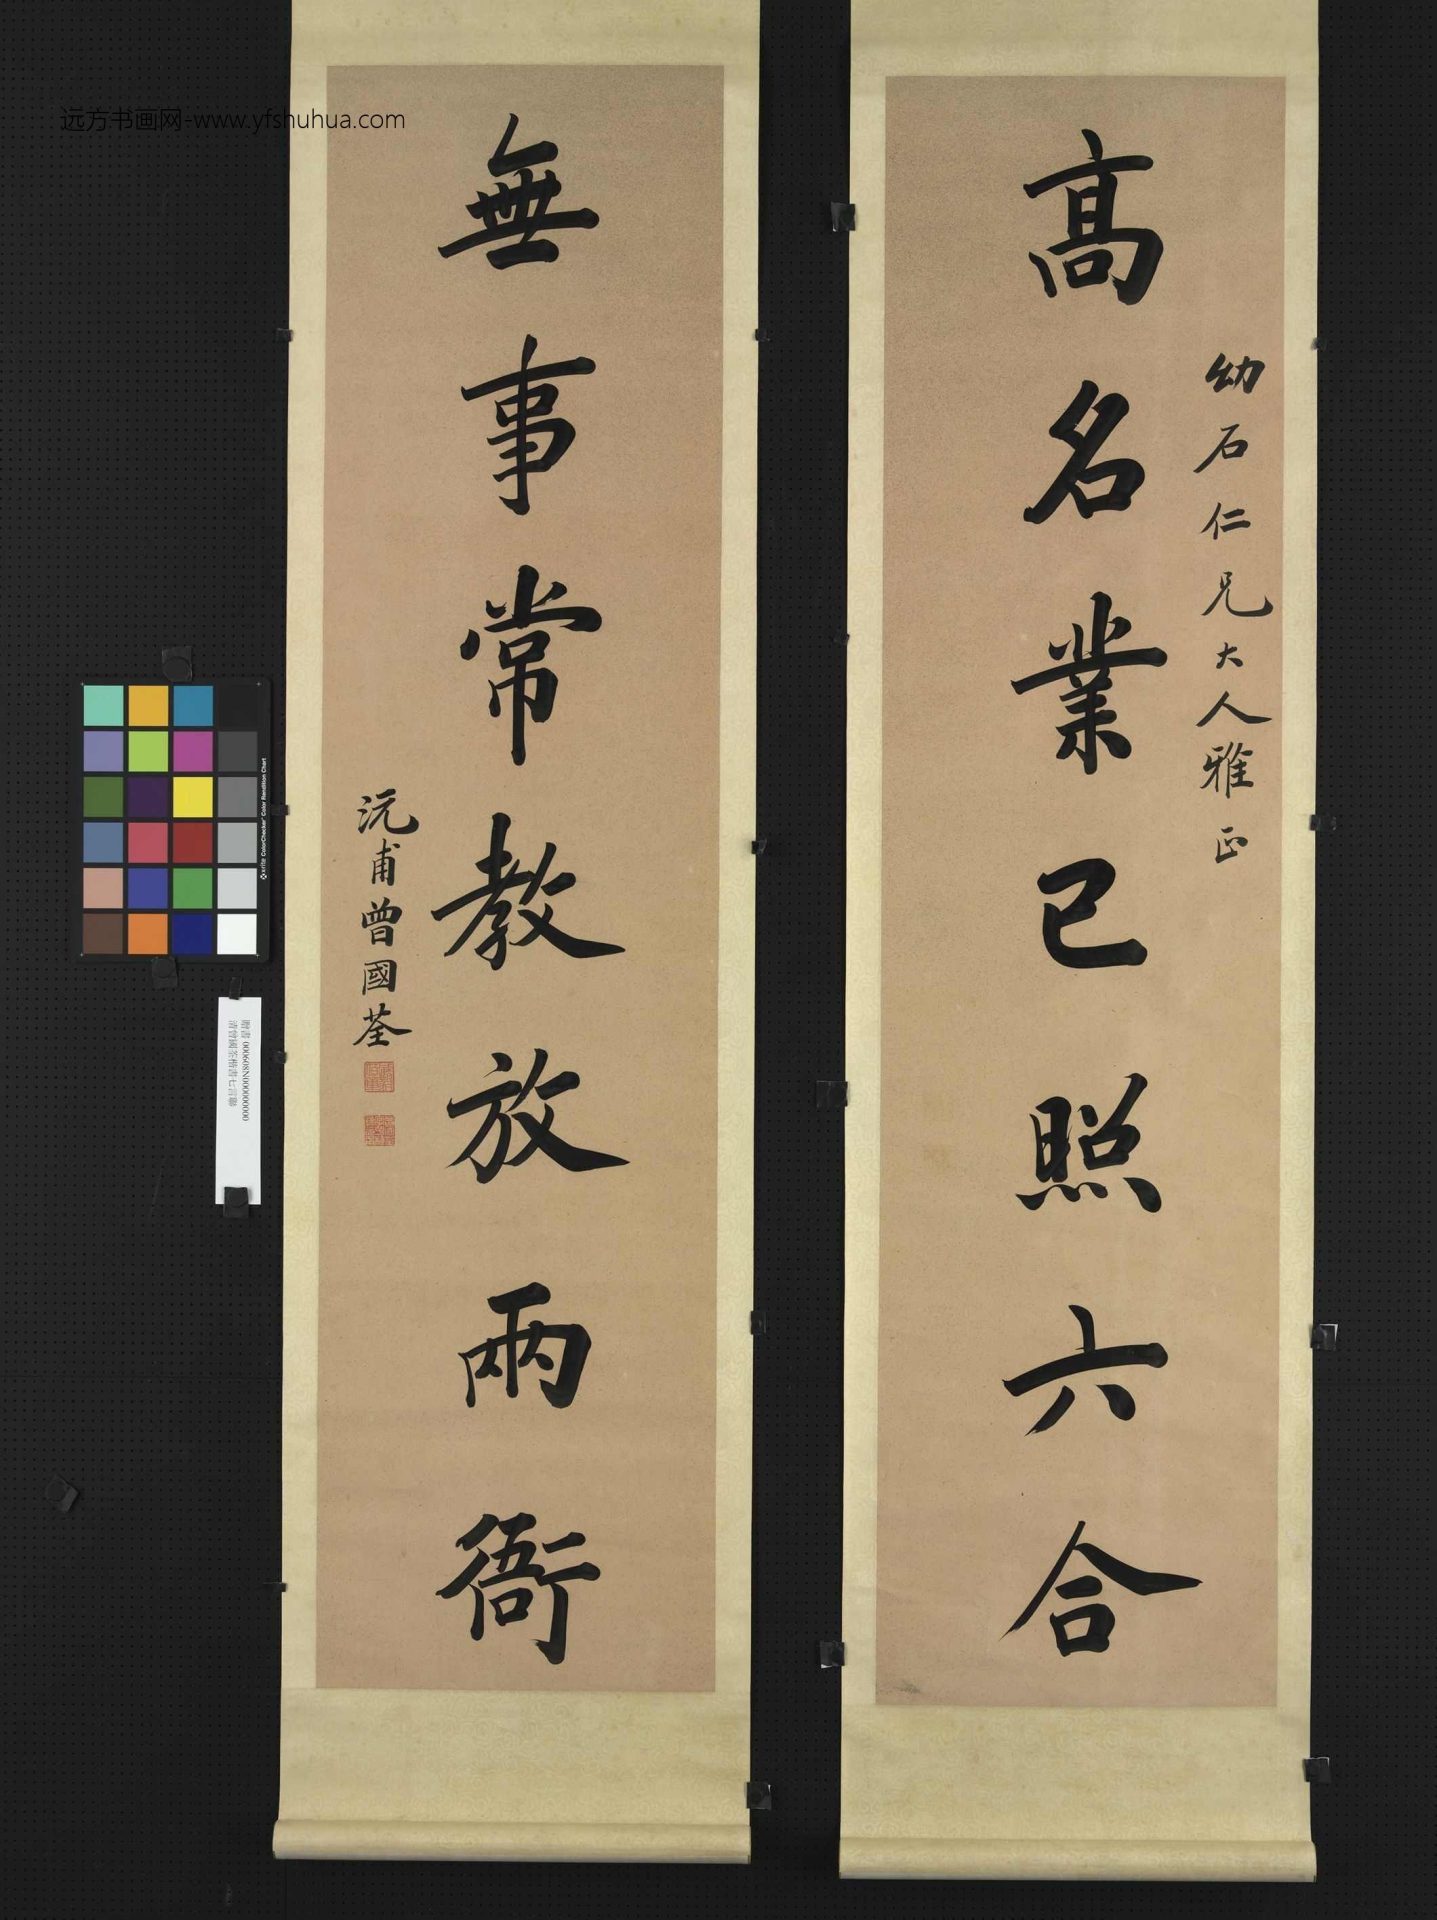 远方书画网-www.yfshuhua.com
高名業已照六合
幼石仁兄大人雅正
無事常教放兩衙
沅甫曾國荃
贈書 000608N000000000
清曾國荃楷書七言聯
x-rite ColorChecker Color Rendition Chart